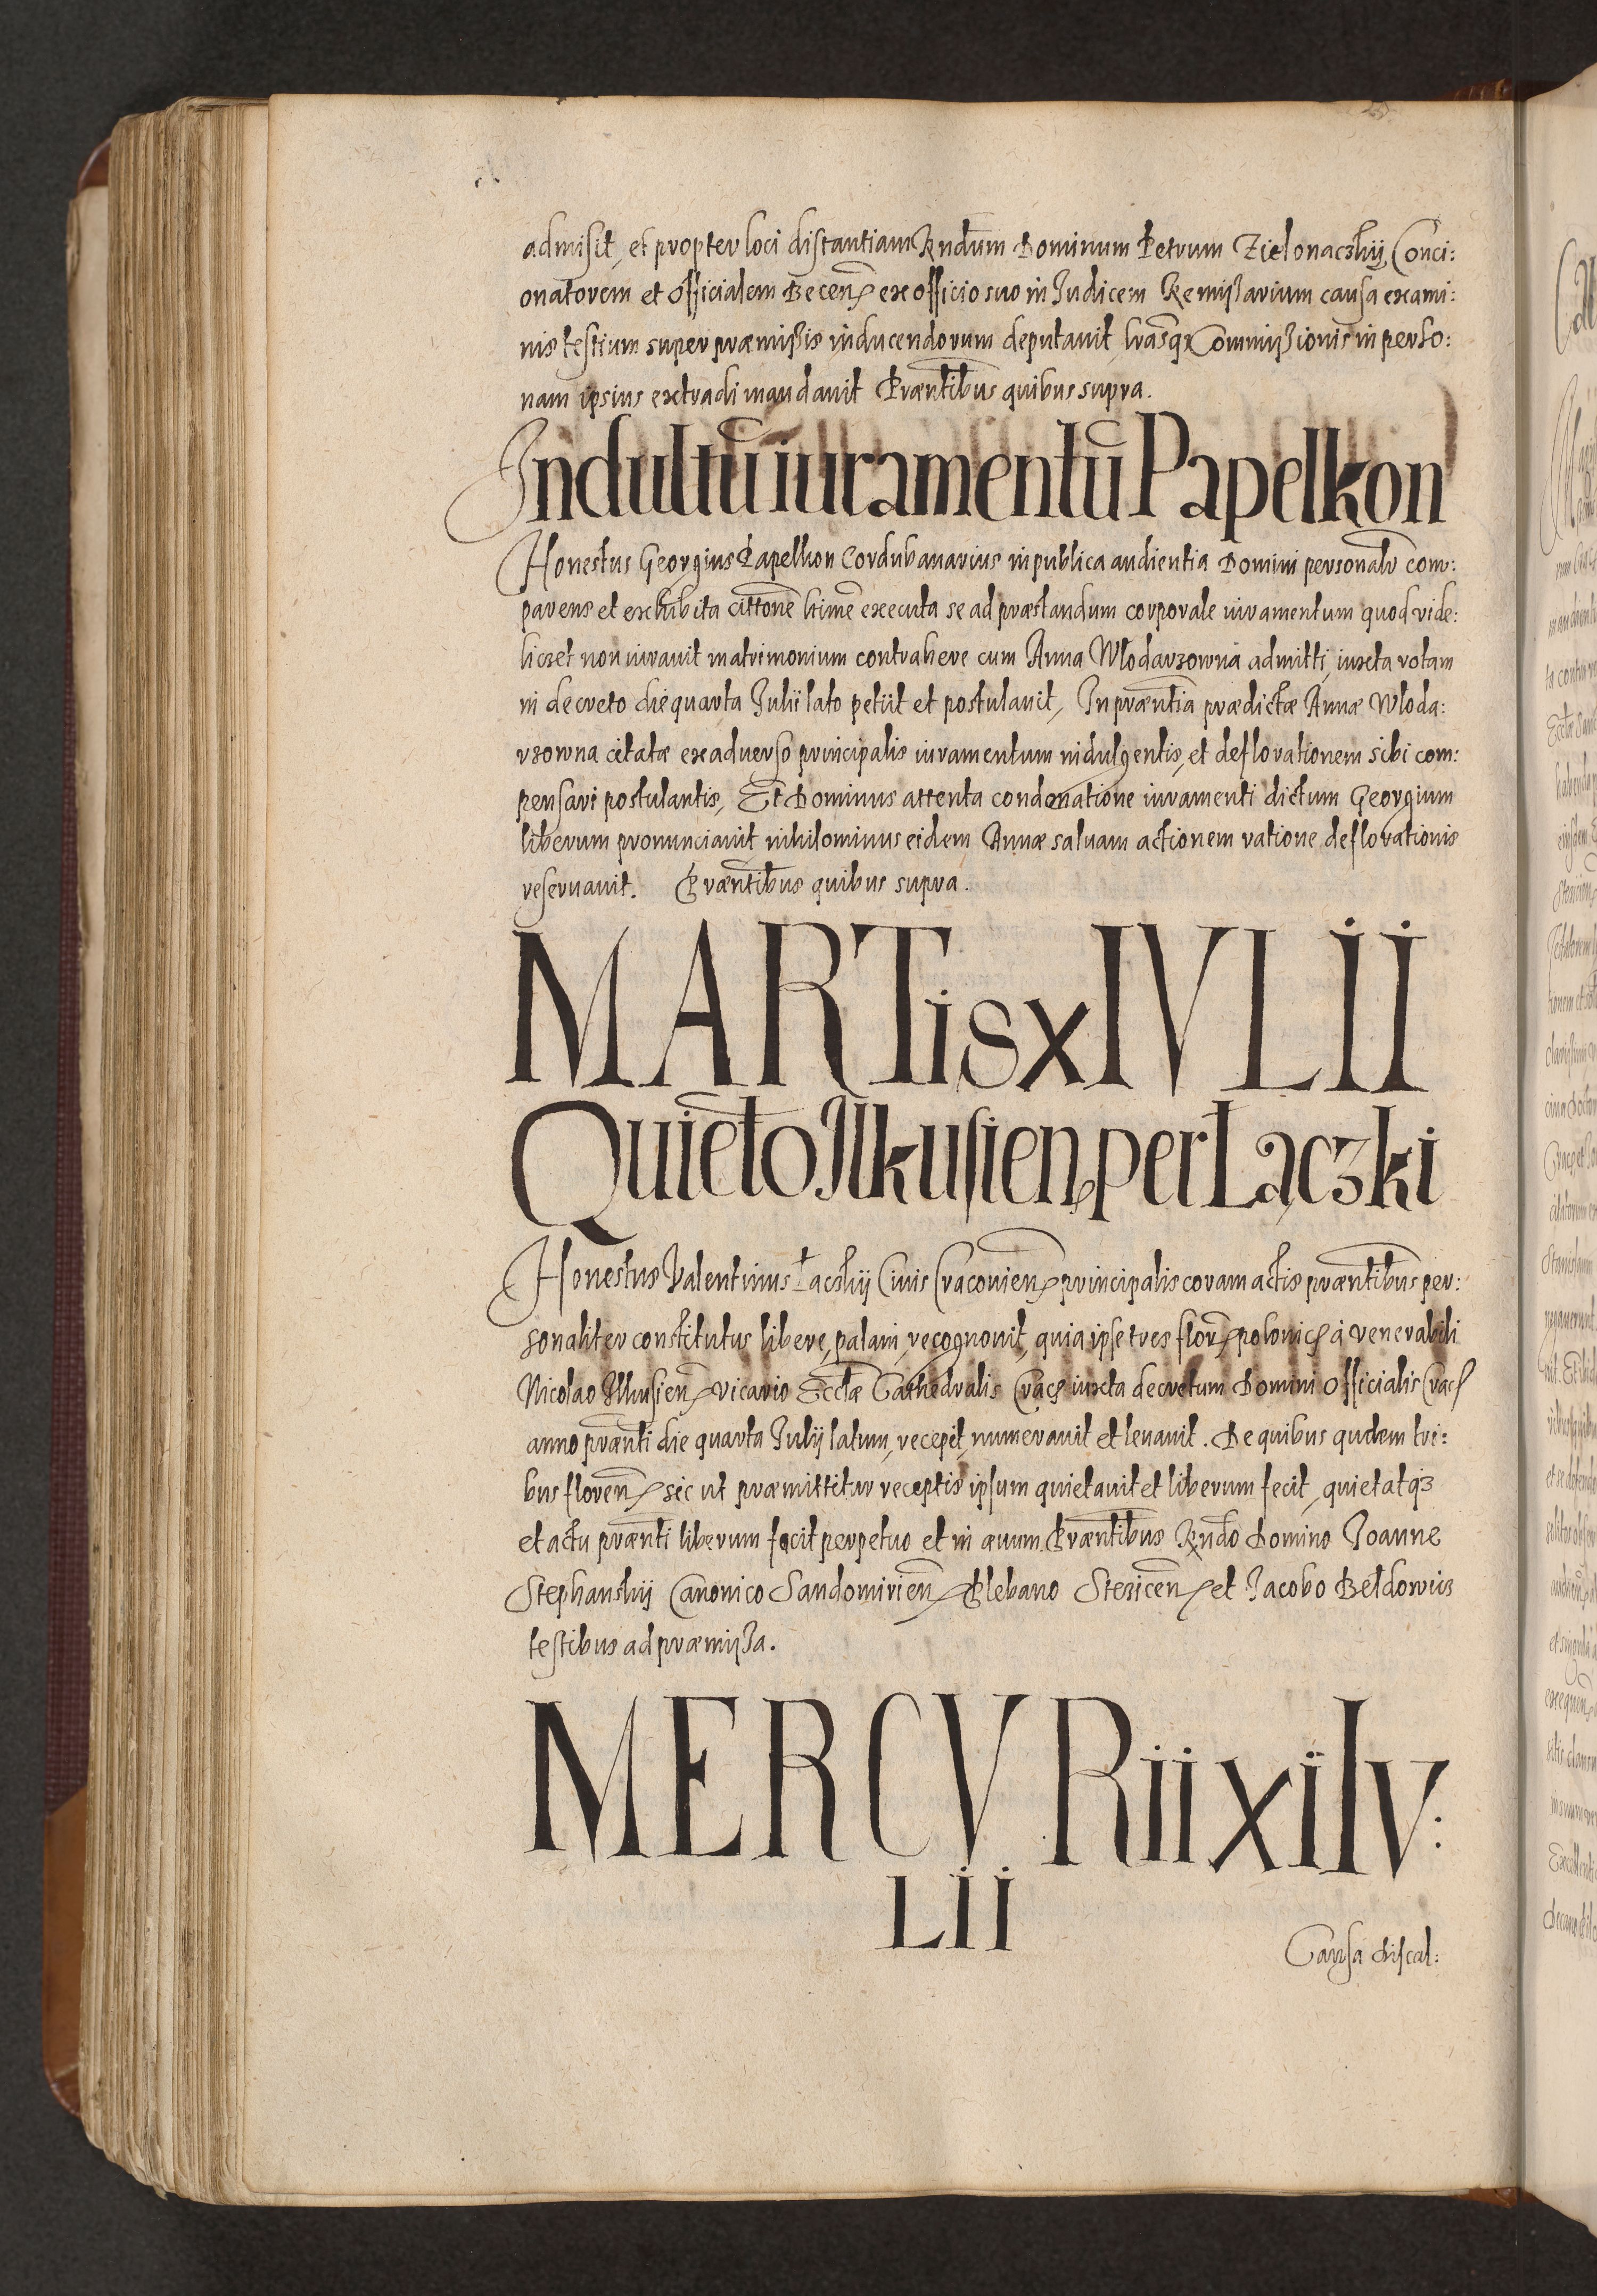 admisit, et propter loci distantiam Rndum Dominum Petrum Zielonaczkij, Conci:
onatorem et Officialem Becen ex officio suo in Judicem Remissarium causa exami:
nis testium super præmissis inducendorum deputavit lrasq Commissionis in perso:
nam ipsius extradi mandavit Præntibus quibus supra.
Indultū iuramentū Papelkon
Honestus Georgius Papelkon Cordubanarius in publica audientia Domini personalr com:
parens et exhibita cittone ltime executa se ad præstandum corporale iuramentum quod vide:
liczet non iuravit matrimonium contrahere cum Anna Wlodarzowna admitti, iuxta rotam
in decreto die quarta Julii lato petiit et postulavit, In præntia prædictæ Annæ Wloda:
rzowna citatæ ex adverso principalis iuramentum indulgentis, et deflorationem sibi com:
pensari postulantis, Et Dominus attenta condonatione iuramenti dictum Georgium
liberum pronunciavit nihilominus eidem Annæ salvam actionem ratione deflorationis
reservavit. Præntibus quibus supra.
MARTis x IVLII
Quietō Ilkusien per Łączki
Honestus Valentinus Łaczkij Civis Cracovien principalis coram actis præntibus per:
sonaliter constitutus libere, palam, recognovit, quia ipse tres flor polonic à venerabili
Nicolao Ilkusien vicario Ecclæ Cathedralis Crac iuxta decretum Domini Officialis Crac
anno prænti die quarta Julij latum, recepit, numeravit et levavit. De quibus quidem tri:
bus floren sic ut præmittitur receptis ipsum quietavit et liberum fecit, quietatq3
et actu prænti liberum facit perpetuo et in ævum. Præntibus Rndo Domino Joanne
Stephanskij Canonico Sandomirien Plebano Stericen et Jacobo Bełdowicz
testibus ad præmissa.
MERCVRii xi Iv:
LII
Causa discal: